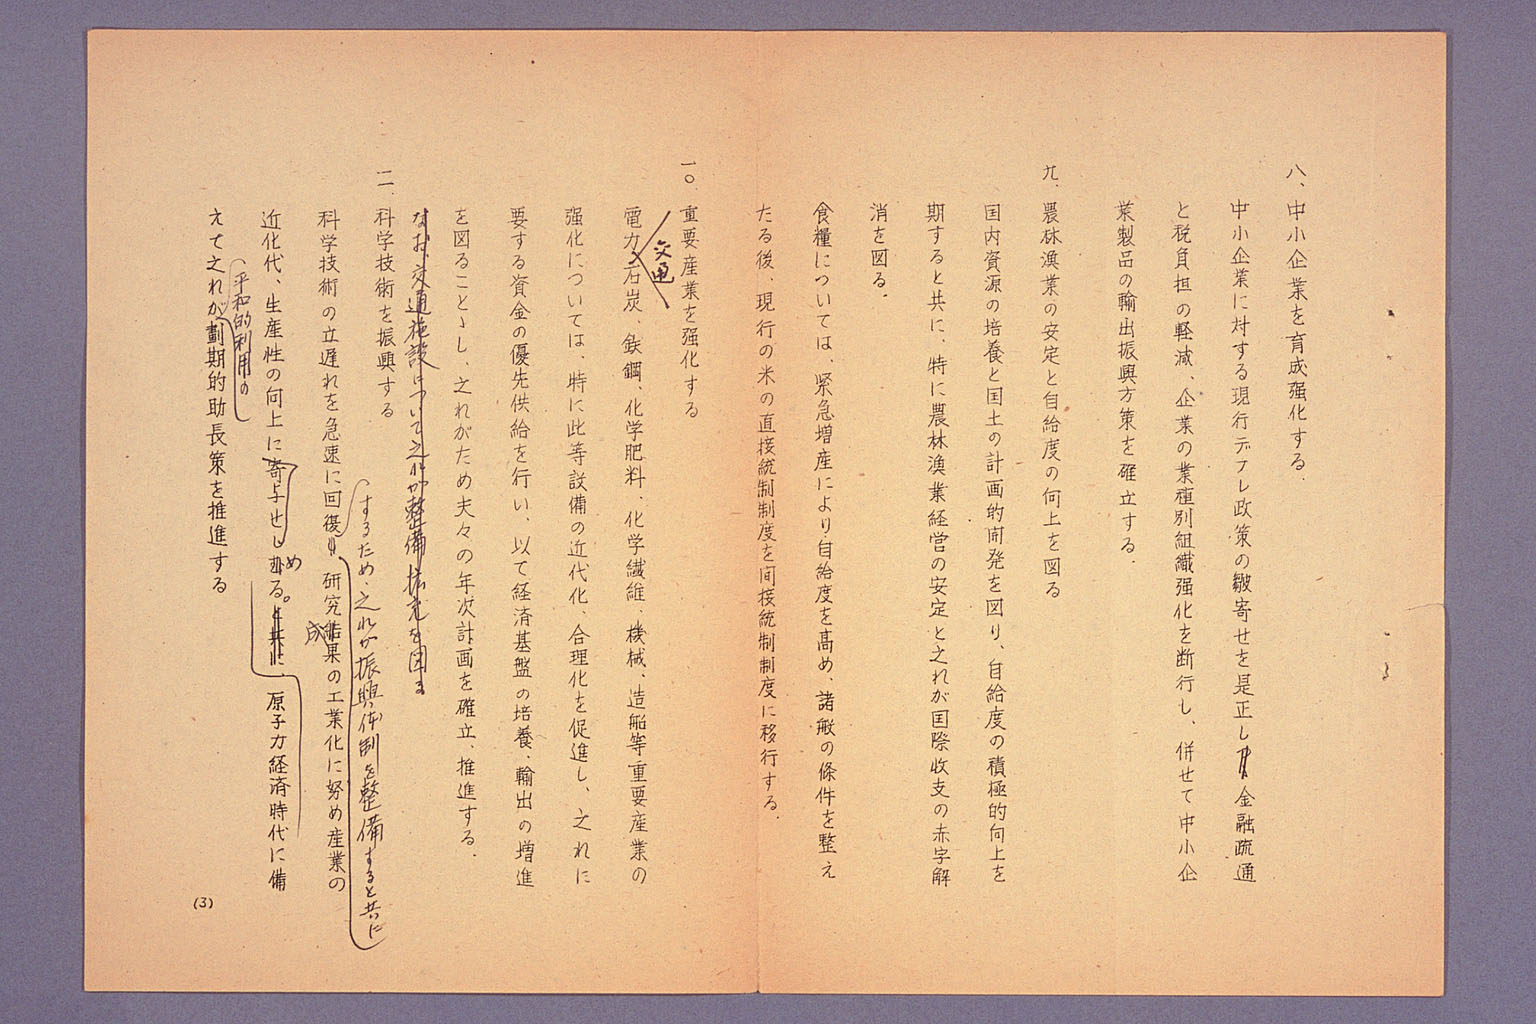 八、中小企業を育成强化する.
中小企業に対する現行デフレ政策の皺寄せを是正し金融疏通
と税負担の軽減、企業の業種別組織强化を断行し、併せて中小企
業製品の輸出振興方策を確立する.
九.農林漁業の安定と自給度の何上を図る
国内資源の培養と国土の計画的開発を図り、自給度の積極的向上を
期すると共に、特に農林漁業経営の安定と之れが国際收支の赤字解
消を図る.
食糧については、緊急増産により自給度を高め、諸般の條件を整え
たる後、現行の米の直接統制制度を間接統制制度に移行する.
一〇.重要産業を强化する
交通
電力、石炭、鉄鋼、化学肥料、化学繊維、機械、造船等重要産業の
强化については、特に此等設備の近代化、合理化を促進し、之れに
要する資金の優先供給を行い、以て経済基盤の培養、輸出の増進
を図ることゝし、之れがため夫々の年次計画を確立、推進する.
なお、交通施設について之れが整備拡充を図る
一一.科学技術を振興する
するため、之れが振興体制を整備すると共に
科学技術の立遅れを急速に回復し研究結果の工業化に努め産業の
成
近代代、生産性の何上に寄与せしむる。と共に、原子力経済時代に備
め
平和的利用の
えて之れが劃期的助長策を推進する
(3)